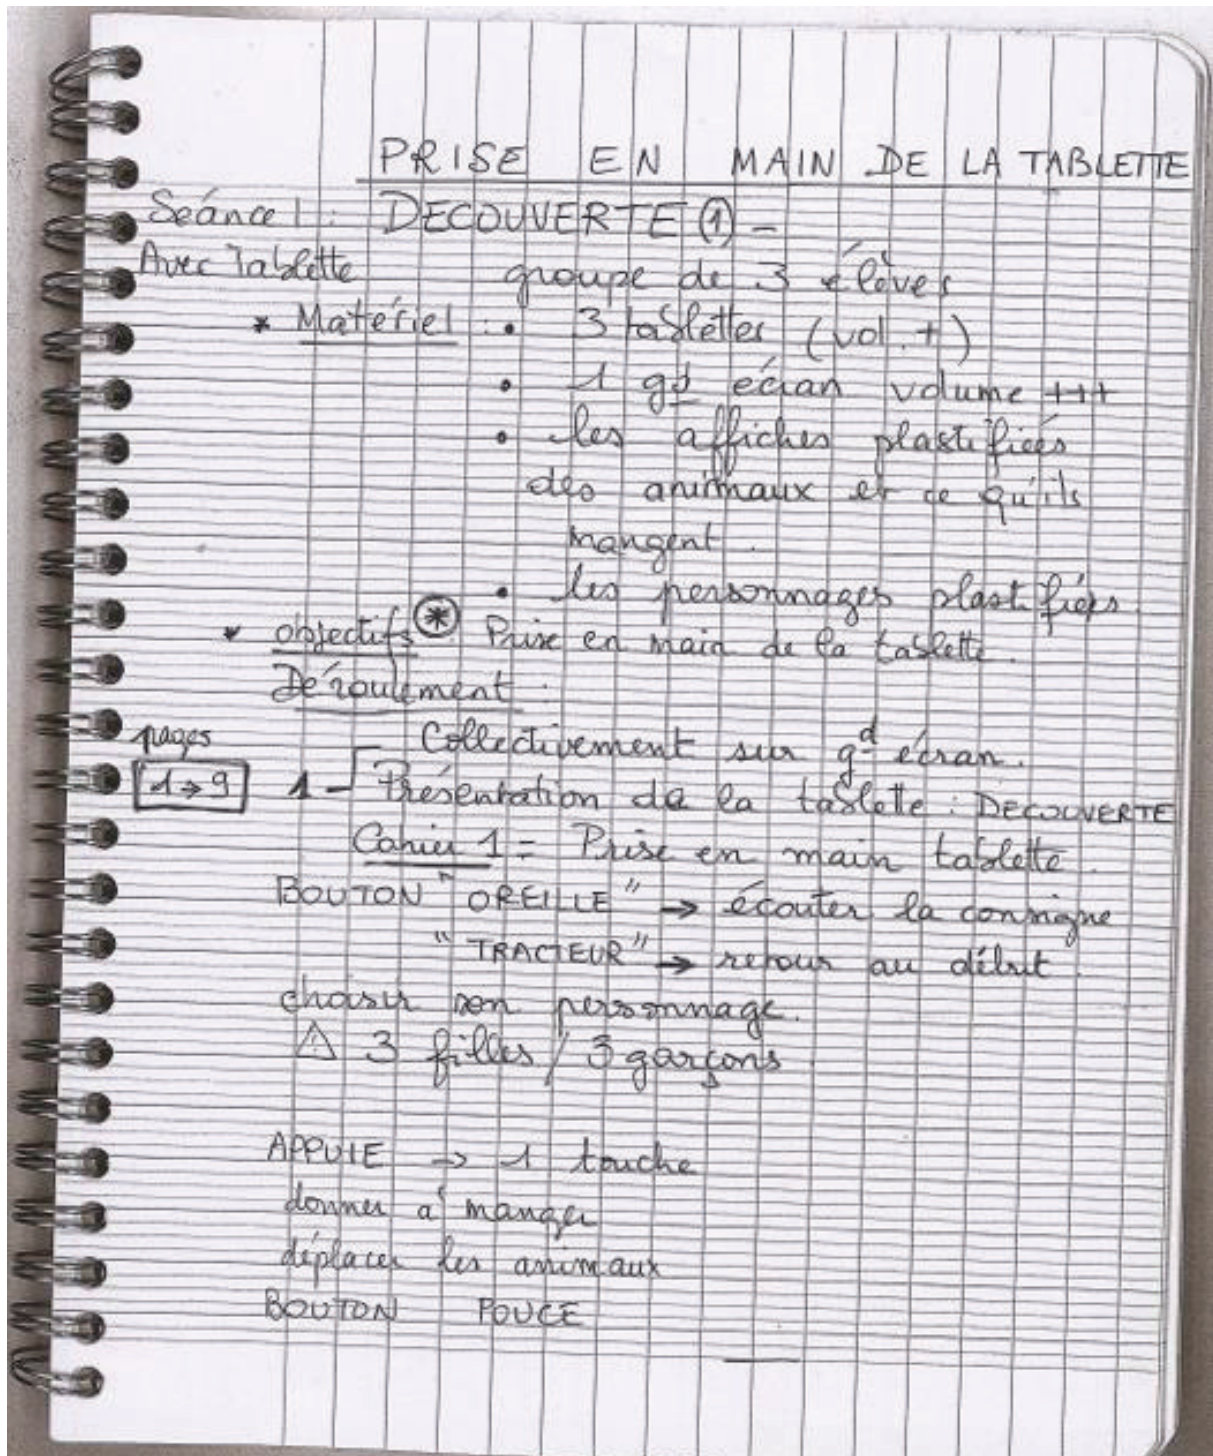 PRISE EN MAIN DE LA TABLETTE
Séance 1 : DECOUVERTE ① -
Avec Tablette groupe de 3 élèves
* Matériel : • 3 tablettes (vol. +)
• 1 gd écran volume +++
• les affiches plastifiées
des animaux et ce qu'ils
mangent.
• les personnages plastifiés.
* objectifs * Prise en main de la tablette.
Déroulement :
Collectivement sur gd écran.
pages
1→9 1- Présentation de la tablette : DECOUVERTE
Cahier 1 = Prise en main tablette.
BOUTON "OREILLE" → écouter la consigne
"TRACTEUR" → retour au début.
choisir son personnage.
⚠ 3 filles / 3 garçons.
APPUIE → 1 touche
donner à manger
déplacer les animaux
BOUTON POUCE